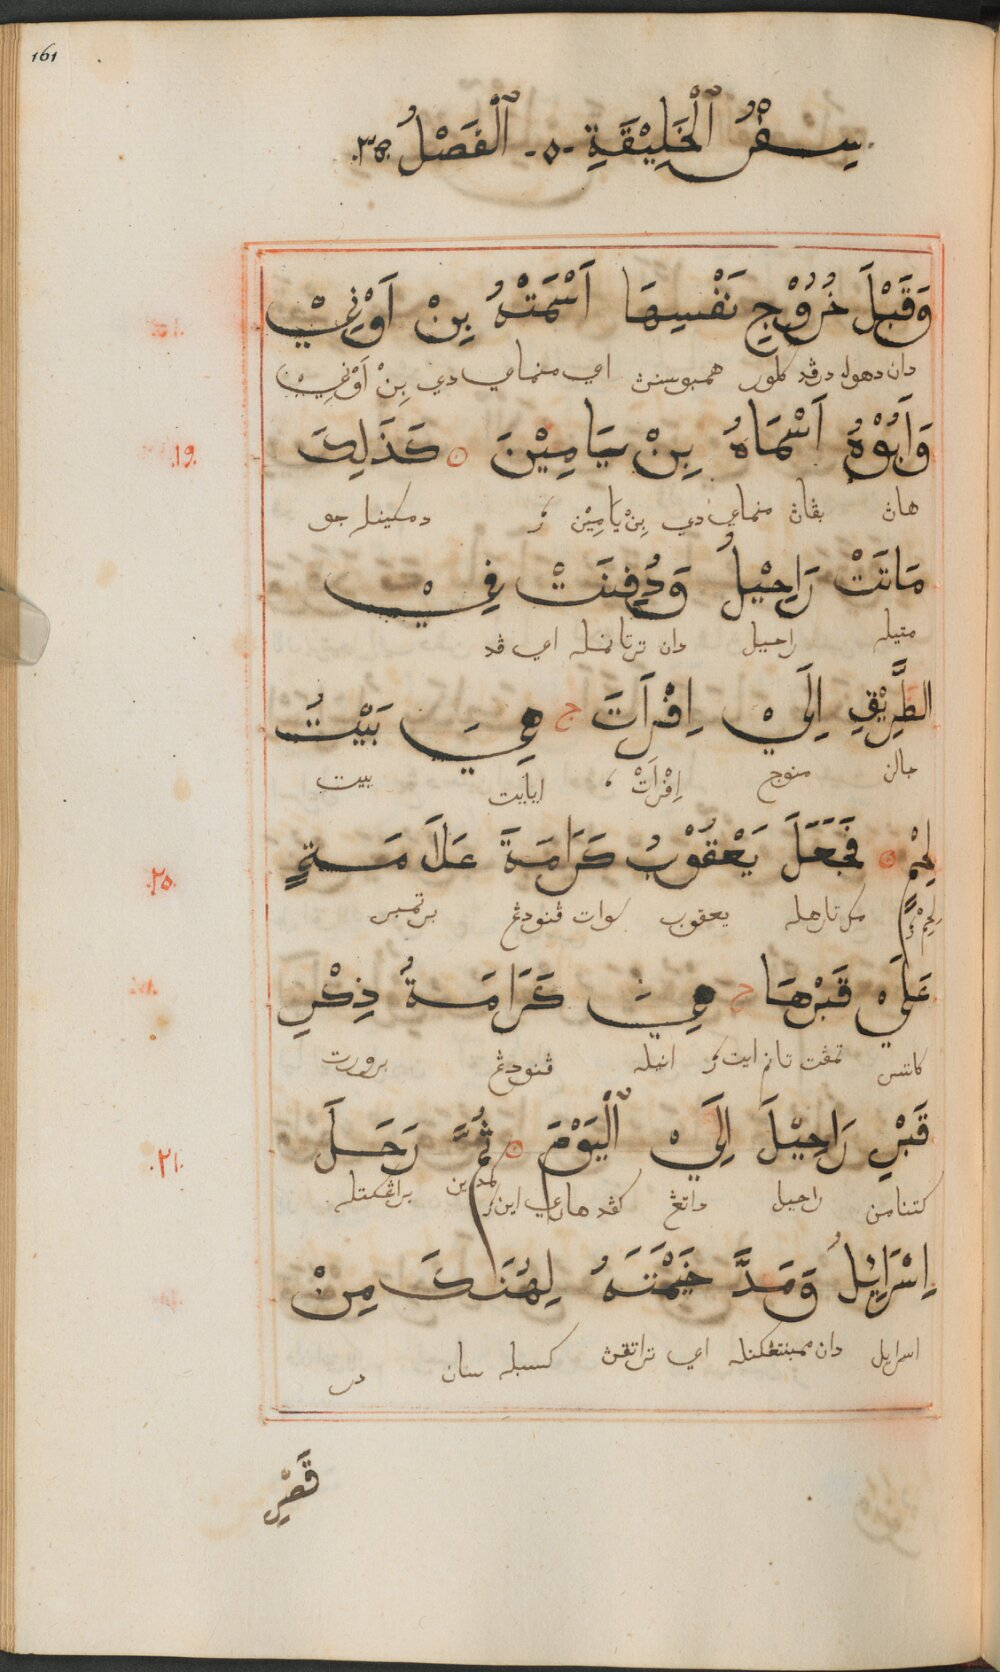 161
سِفْرُ ٱلْخَلِيْقَةِ -٥- ٱلْفَصْلُ ٣٥
وَقَبْلَ خُرُوْجِ نَفْسِهَا اَسْمَتْهُ بِنْ اَوْنِيْ
دان دهولو درڤد كلور همبوسنڽ اي منماي دي بِنْ اَوْنِيْ
وَاَبُوْهُ اَسْمَاهُ بِنْ يَامِيْنَ ۝ كَذَلِكَ
١٩
هاڽ بڤاڽ منماي دي بِنْ يَامِيْن دمكينله جو
مَاتَتْ رَاحِيْلُ وَدُفِنَتْ فِيْ
متيله راحيل دان ترتانمله اي ڤد
الطَّرِيْقِ اِلَيْ اِفْرَاتَ ج هِيَ بَيْتُ
جالن منوج اِفْرَاتْ ، ايايت بيت
لَحْمٍ ۝ فَجَعَلَ يَعْقُوْبُ كَرَامَةً عَلَامَةٍ
٢٠
لحم مك تارهله يعقوب سوات ڤنودڠ
عَلَيْ قَبْرِهَا ج هِيَ كَرَامَةُ ذِكْرِ
كاتس تمڤت تانم ايت انيله ڤنودڠ
قَبْرِ رَاحِيْلَ اِلَيْ ٱلْيَوْمَ ۝ ثُمَّ رَحَلَ
٢١
راحيل داتڠ كڤد هاري اين كمدين برڠكتله
اِسْرَائِلُ وَمَدَّ خَيْمَتَهُ لِهُنَاكَ مِنْ
اسرايل دان ممبنتڠكنله اي تراتقڽ كسبله سان در
قَصْرِ